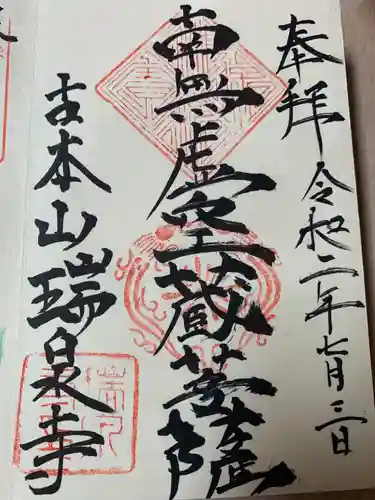 奉拝 令和二年七月三日
南無虚空蔵菩薩
古本山瑞泉寺